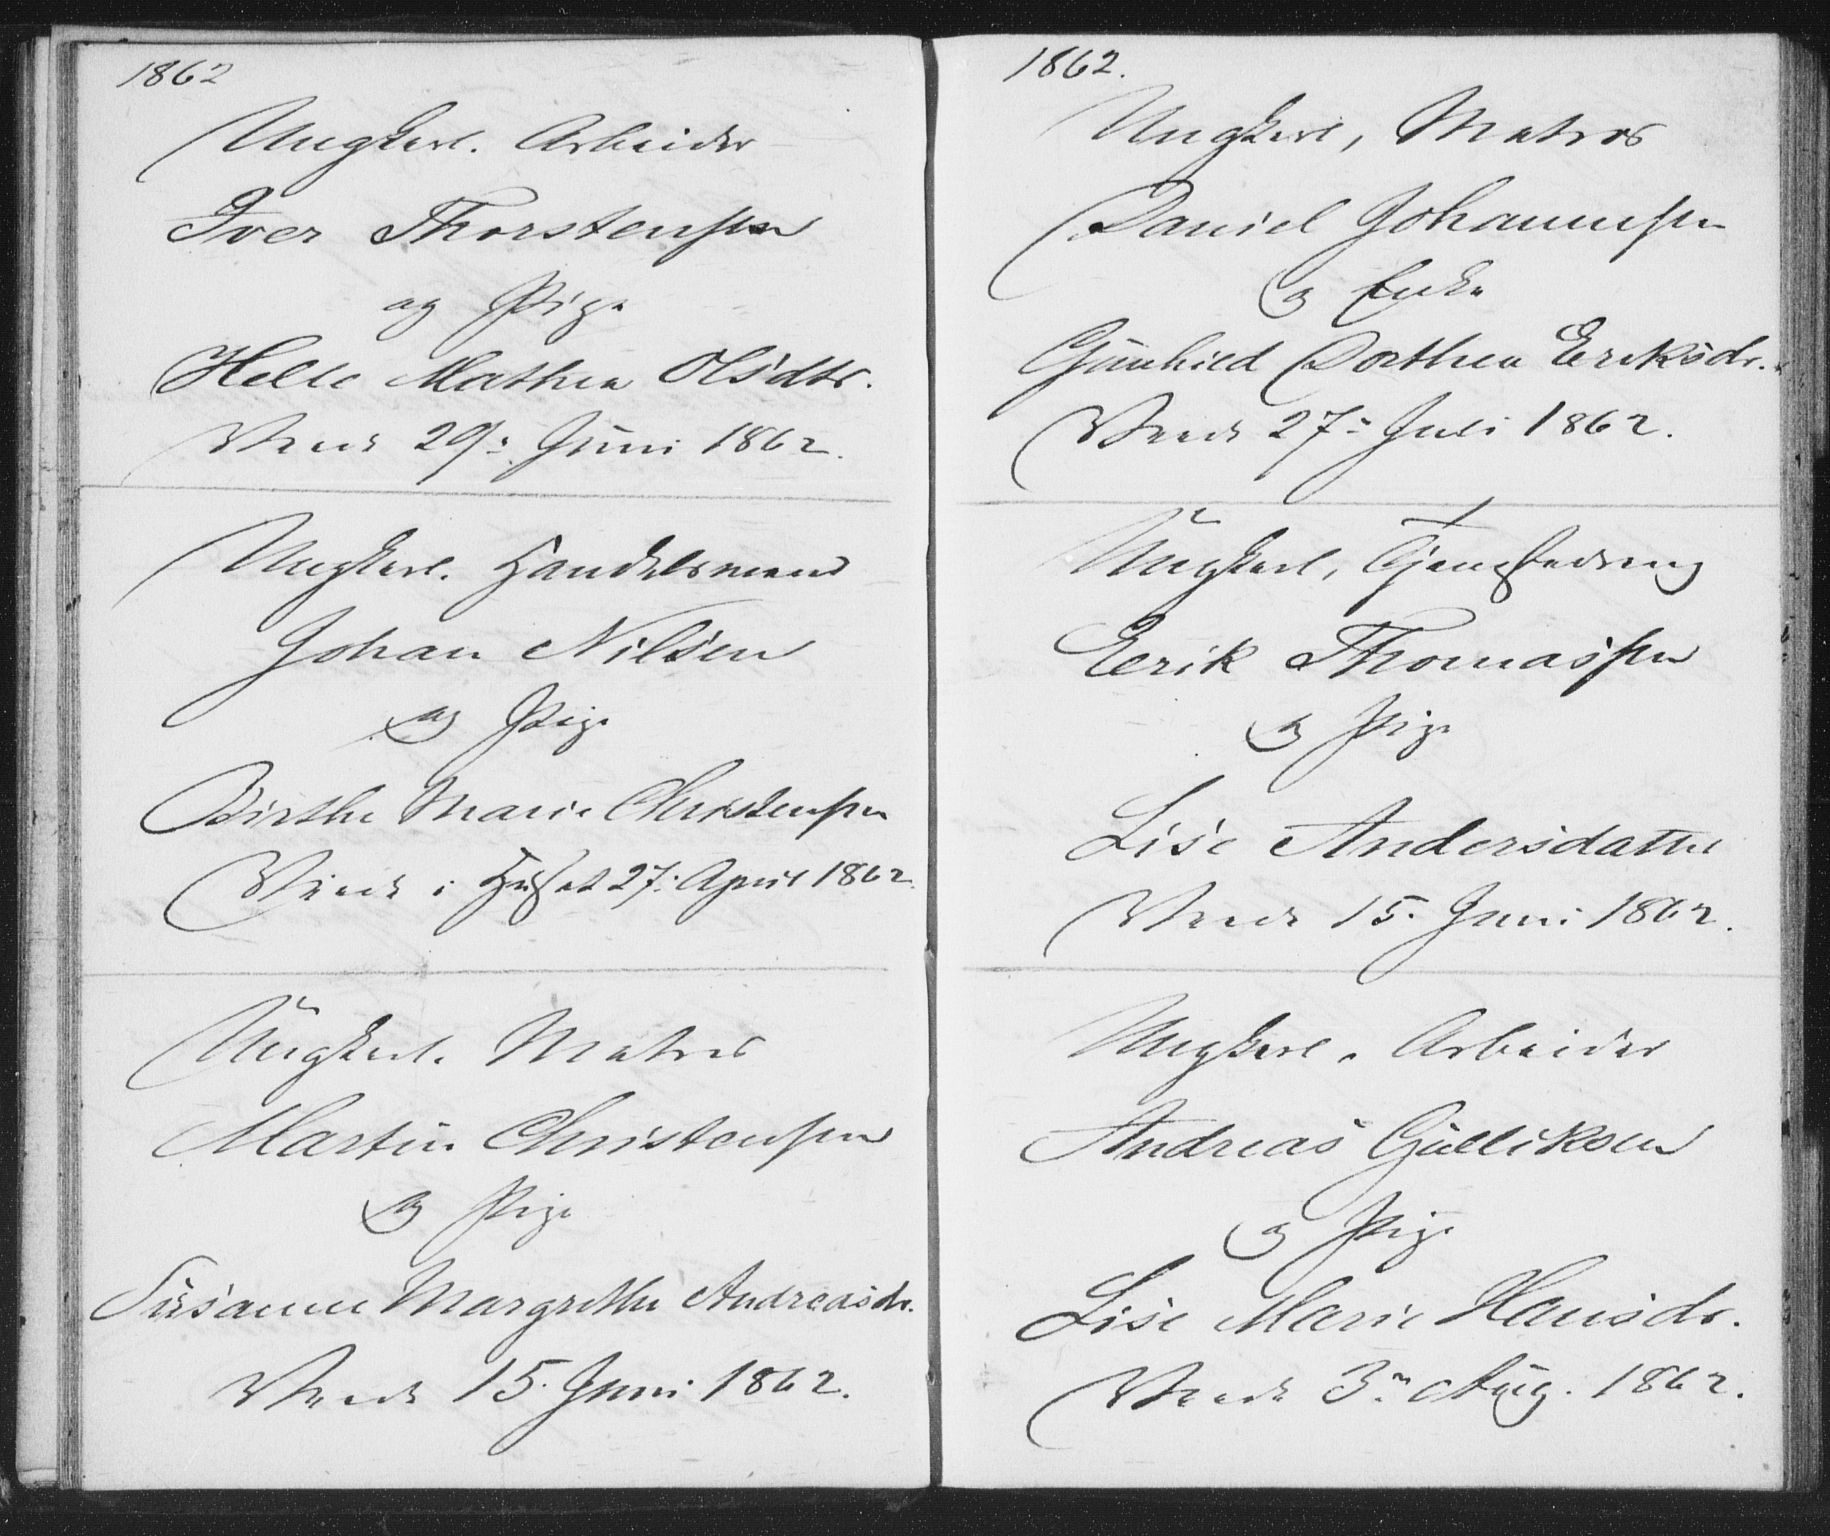 1862
Ungkarl. Arbeider
Iver Thorstensen
og Pige
Helle Mathea Olsdtr.
Viede 29. Juni 1862.
Ungkarl. Handelsmand
Johan Nilsen
og Pige
Birthe Marie Christensen
Viede i Huset 27. April 1862
Ungkarl. Matros
Martin Christensen
og Pige
Susanne Margrethe Andreasdr.
Viede 15. Juni 1862.
1862.
Ungkarl, Matros
Daniel Johannesen
og Enke
Gunhild Dorthea Eriksdr.
Viede 27. Juli 1862.
Ungkarl, Tjenestedreng
Eerik Thomassen
og Pige
Lise Andersdatter
Viede 15. Juni 1862.
Ungkarl. Arbeider
Andreas Gulliksen
og Pige
Lise Marie Hansdr.
Viede 3. Aug. 1862.